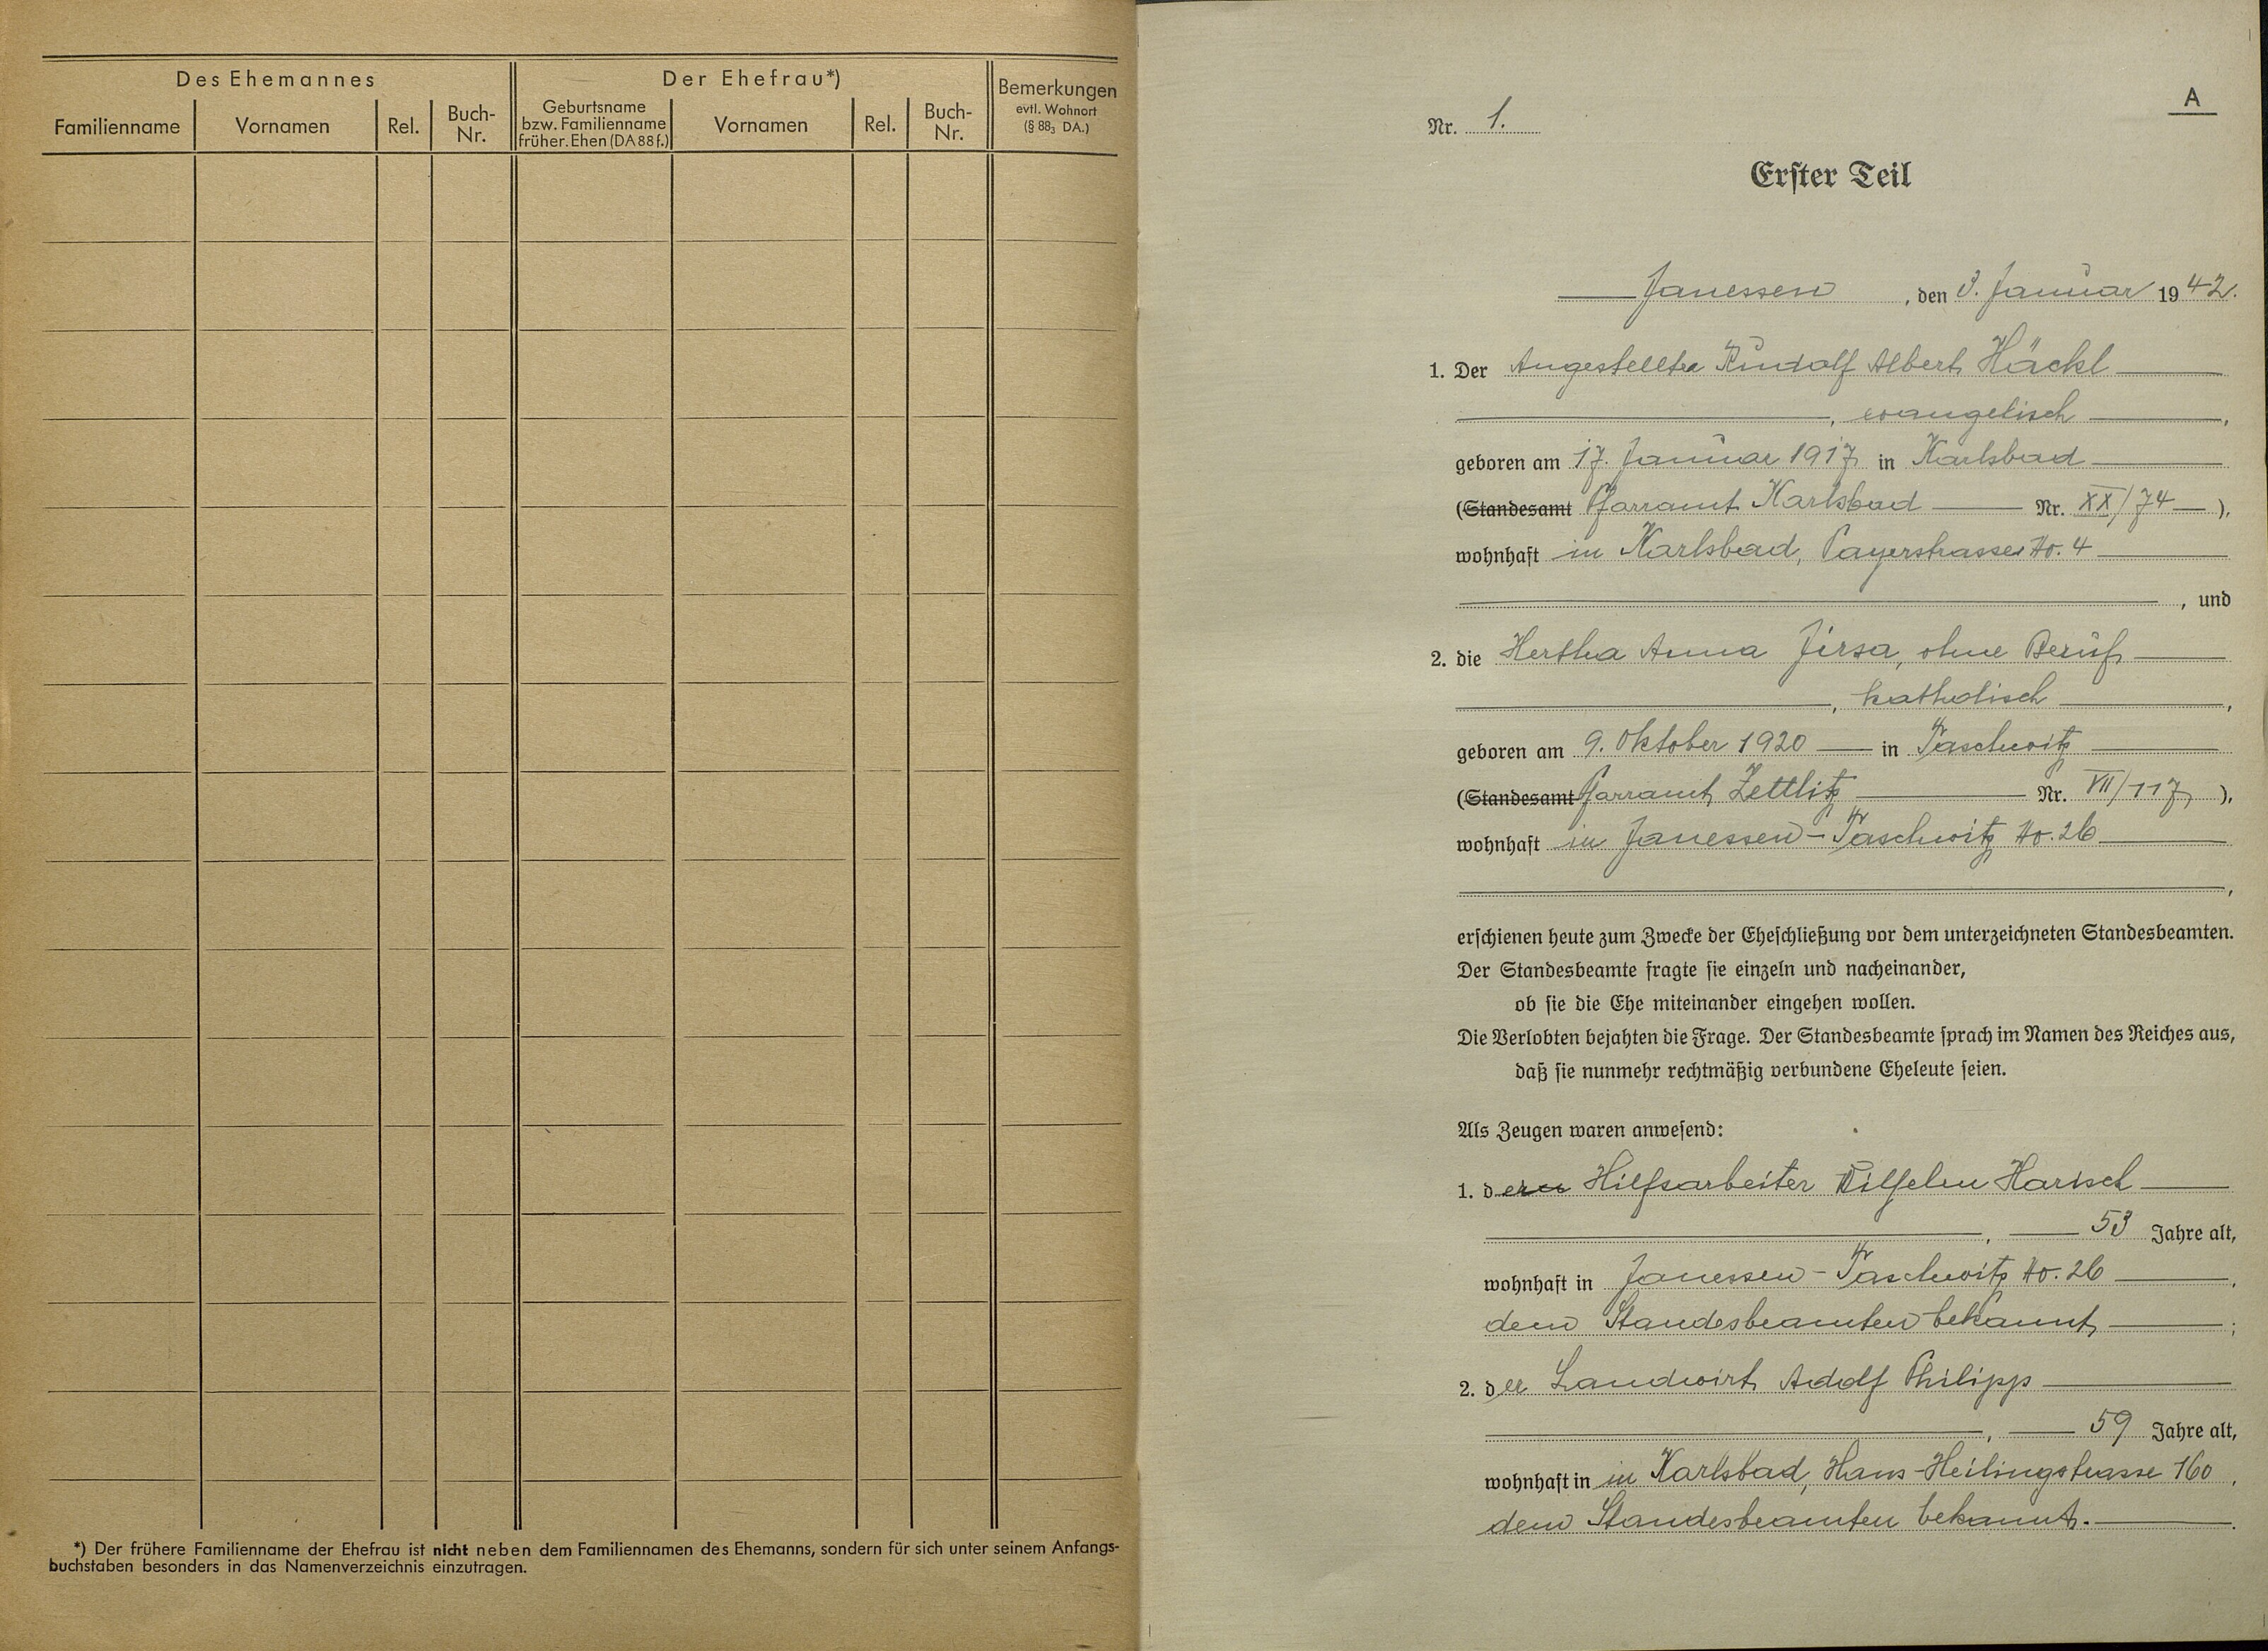 Des Ehemannes
Der Ehefrau*)
Bemerkungen
evtl. Wohnort
(§ 88₃ DA.)
Familienname
Vornamen
Rel.
Buch-
Nr.
Geburtsname
bzw. Familienname
früher. Ehen (DA 88 f.)
Vornamen
Rel.
Buch-
Nr.
*) Der frühere Familienname der Ehefrau ist nicht neben dem Familiennamen des Ehemanns, sondern für sich unter seinem Anfangs-
buchstaben besonders in das Namenverzeichnis einzutragen.
A
Nr. 1.
Erster Teil
Janessen, den 3. Januar 1942.
1. Der Angestellte Rudolf Albert Häckl
, evangelisch,
geboren am 17. Januar 1917 in Karlsbad
(Standesamt Pfarramt Karlsbad Nr. XX/74),
wohnhaft in Karlsbad, Payerstrasse No. 4
, und
2. die Hertha Anna Jirsa, ohne Beruf
, katholisch,
geboren am 9. Oktober 1920 in Taschwitz
(Standesamt Pfarramt Zettlitz Nr. VII/117),
wohnhaft in Janessen-Taschwitz No. 26
,
erschienen heute zum Zwecke der Eheschließung vor dem unterzeichneten Standesbeamten.
Der Standesbeamte fragte sie einzeln und nacheinander,
ob sie die Ehe miteinander eingehen wollen.
Die Verlobten bejahten die Frage. Der Standesbeamte sprach im Namen des Reiches aus,
daß sie nunmehr rechtmäßig verbundene Eheleute seien.
Als Zeugen waren anwesend:
1. der Hilfsarbeiter Wilhelm Harisch
, 53 Jahre alt,
wohnhaft in Janessen-Taschwitz No. 26,
dem Standesbeamten bekannt;
2. der Landwirt Adolf Philipp
, 59 Jahre alt,
wohnhaft in in Karlsbad, Hans-Heilingstrasse 160,
dem Standesbeamten bekannt.